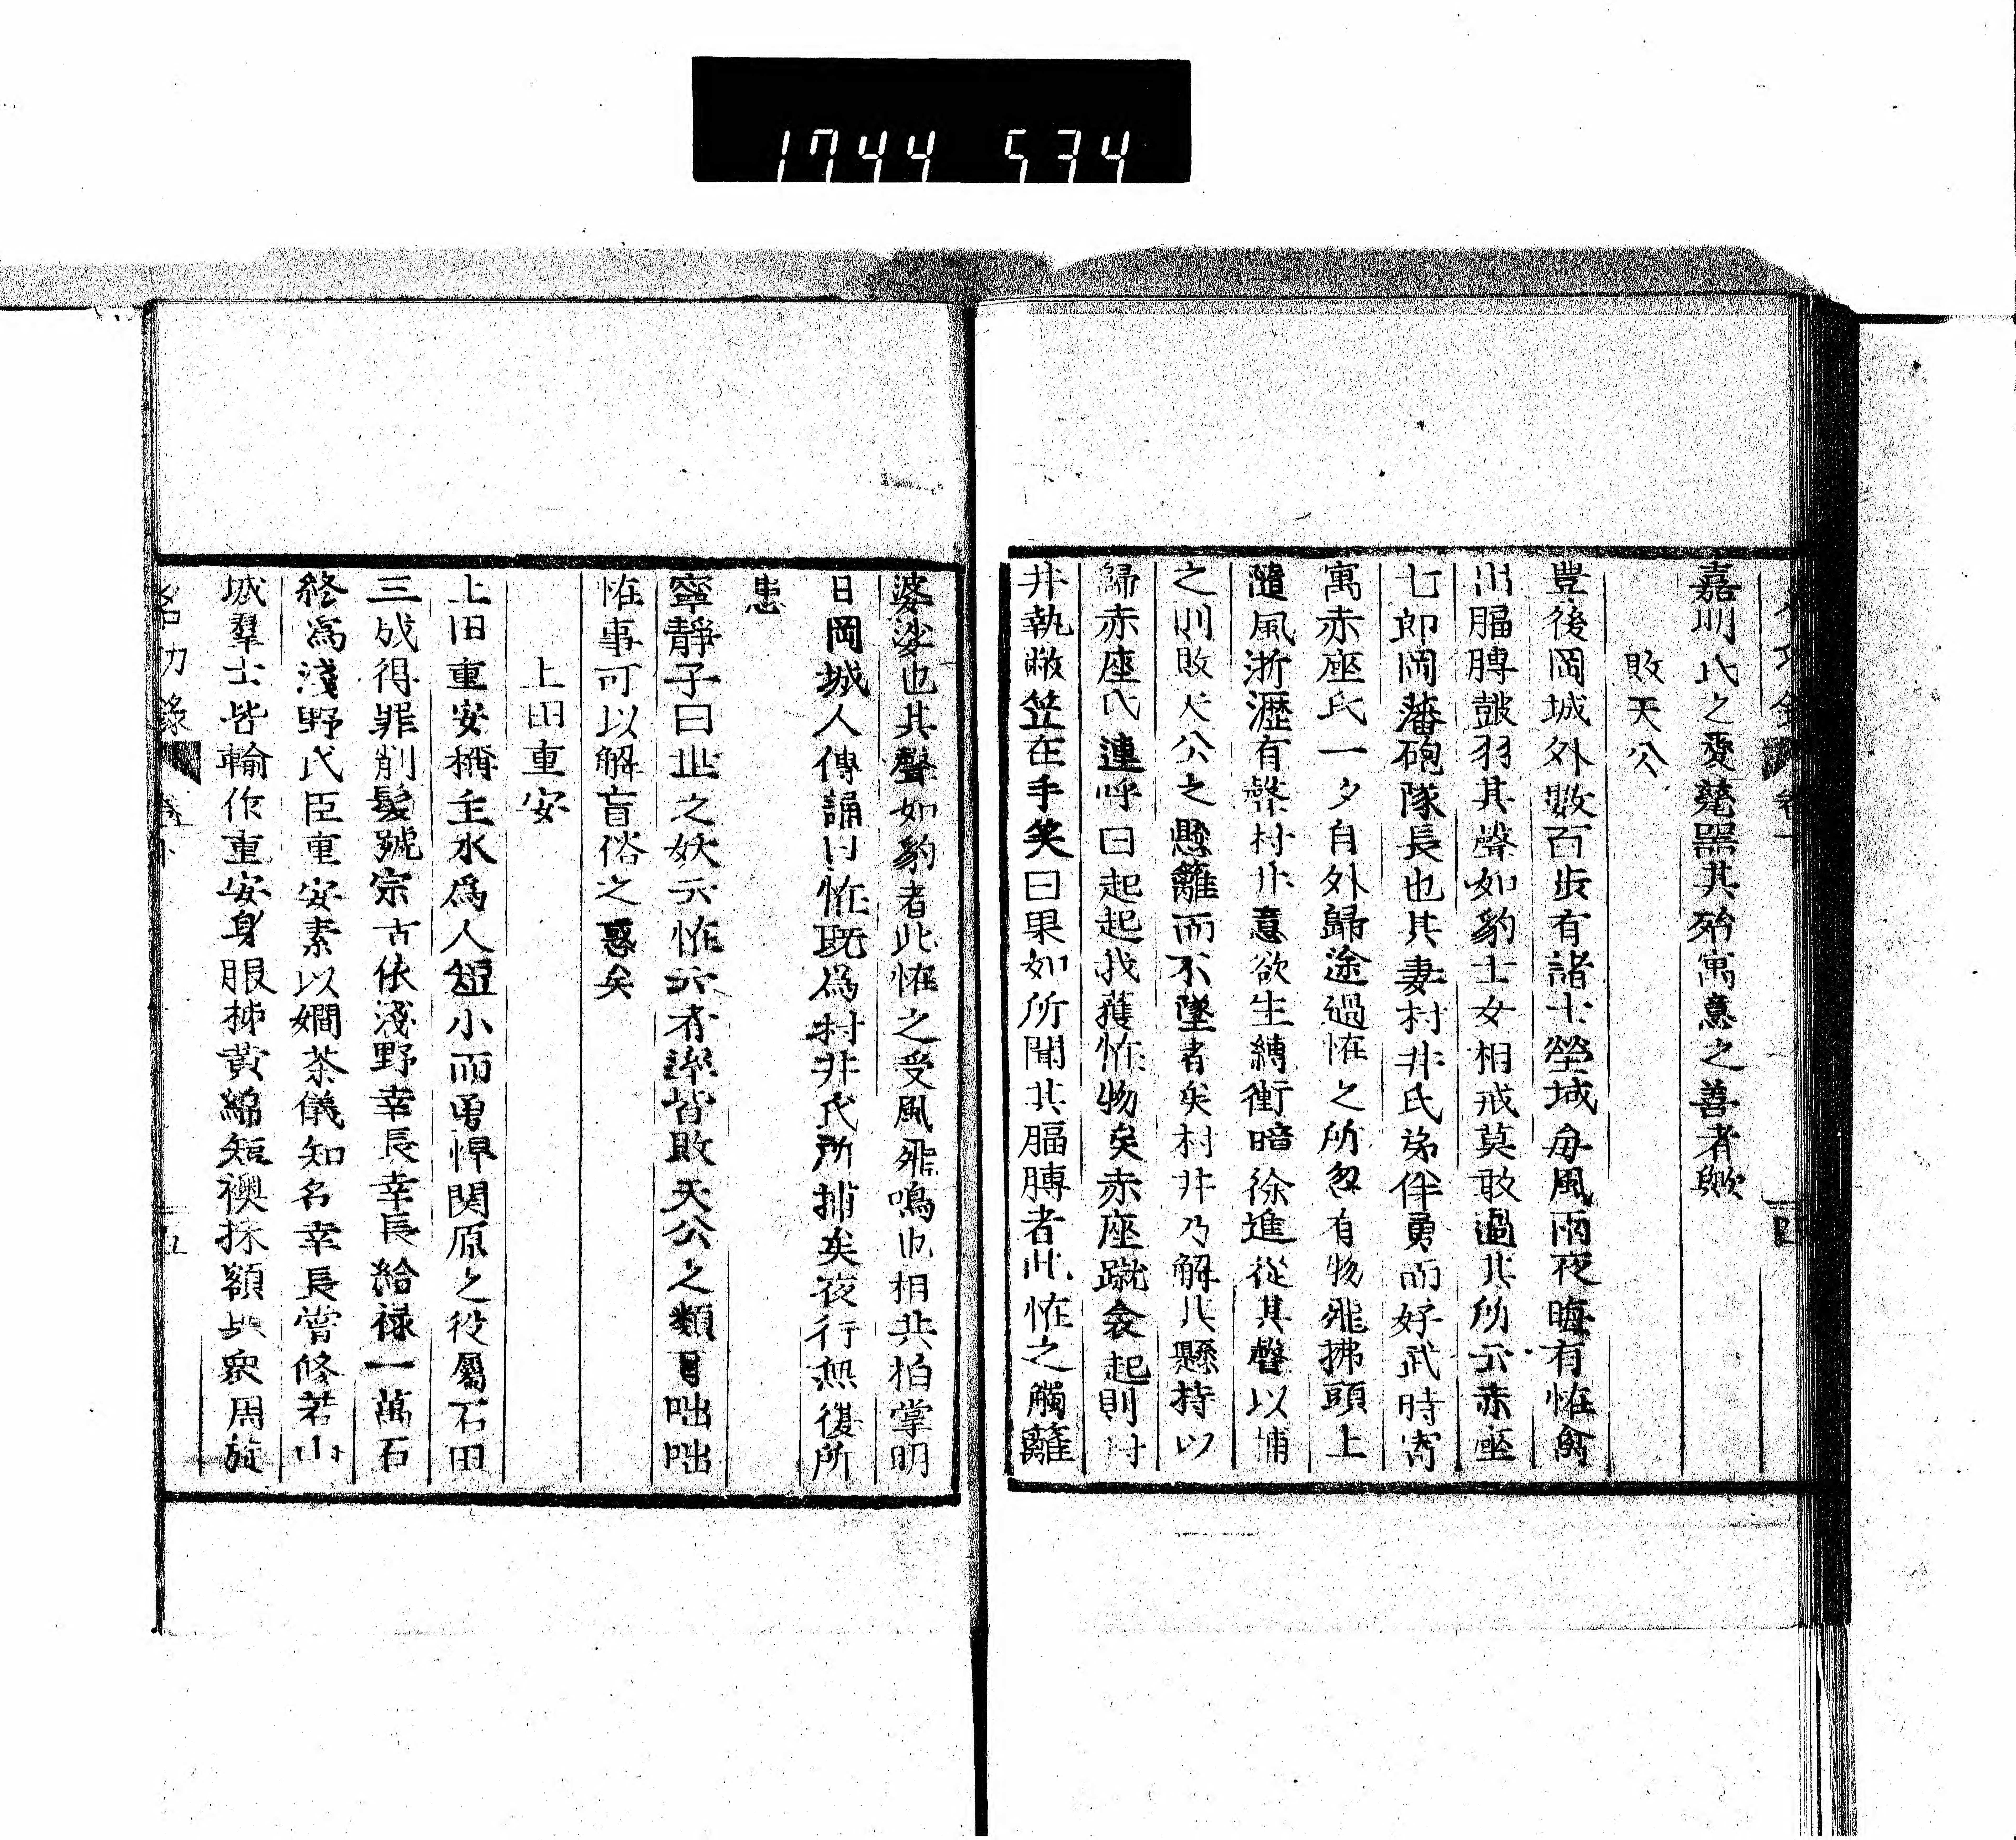 1744 534
嘉明氏之愛甆器其殆寓意之善者歟
敗天公
豊後岡城外數百步有諸士塋域毎風雨夜晦有恠禽
出腷膊皷羽其聲如豹士女相戒莫敢過其所云赤座
七郎岡藩砲隊長也其妻村井氏弟伴勇而好武時寄
寓赤座氏一夕自外歸途過恠之所忽有物飛拂頭上
隨風淅瀝有聲村井意欲生縛衝暗徐進從其聲以捕
之則敗天公之懸籬而不墜者矣村井乃解其懸持以
歸赤座氏連呼曰起起我獲恠物矣赤座蹴衾起則村
井執敝笠在手笑曰果如所聞其腷膊者此恠之觸籬
婆娑也其聲如豹者此恠之受風飛鳴也相共拍掌明
日岡城人傳誦曰恠旣爲村井氏所捕矣夜行無復所
患
寧靜子曰世之妖云恠云者率皆敗天公之類耳咄咄
恠事可以解盲俗之惑矣
上田重安
上田重安稱主水爲人短小而勇悍関原之役屬石田
三成得罪削髮號宗古依淺野幸長幸長給禄一萬石
終爲淺野氏臣重安素以嫺茶儀知名幸長嘗修若山
城羣士皆輸作重安身服柹黄綿短襖抹額與衆周旋
名功錄 卷下 五